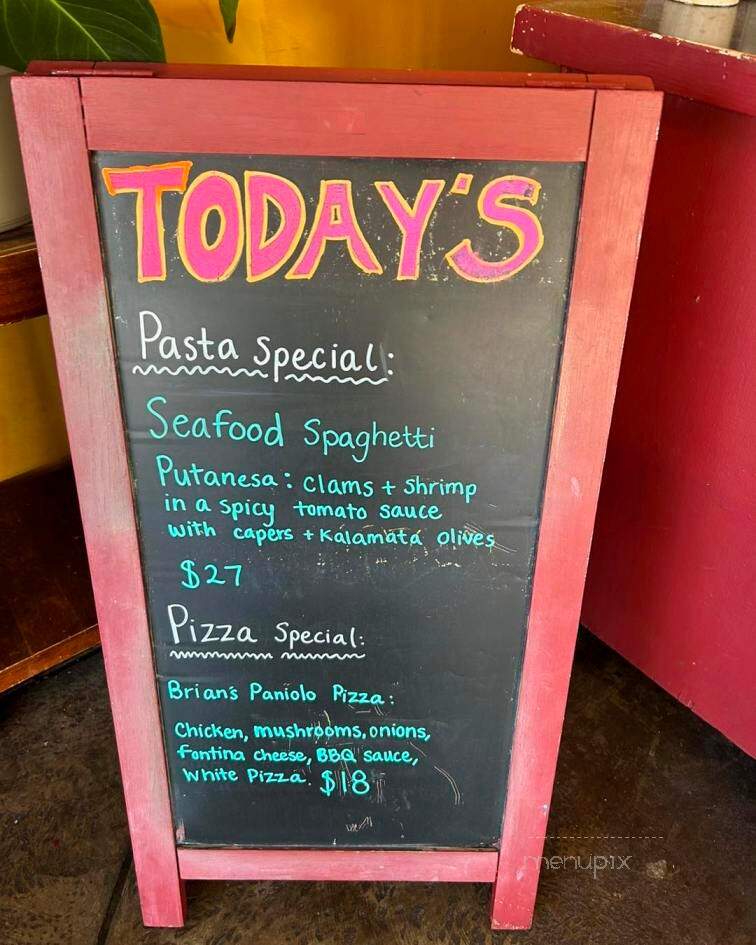 TODAY'S
Pasta Special:
Seafood Spaghetti
Putanesa: clams + shrimp
in a spicy tomato sauce
with capers + Kalamata olives
$27
Pizza Special:
Brian's Paniolo Pizza:
Chicken, mushrooms, onions,
fontina cheese, BBQ sauce,
White Pizza. $18
menupix